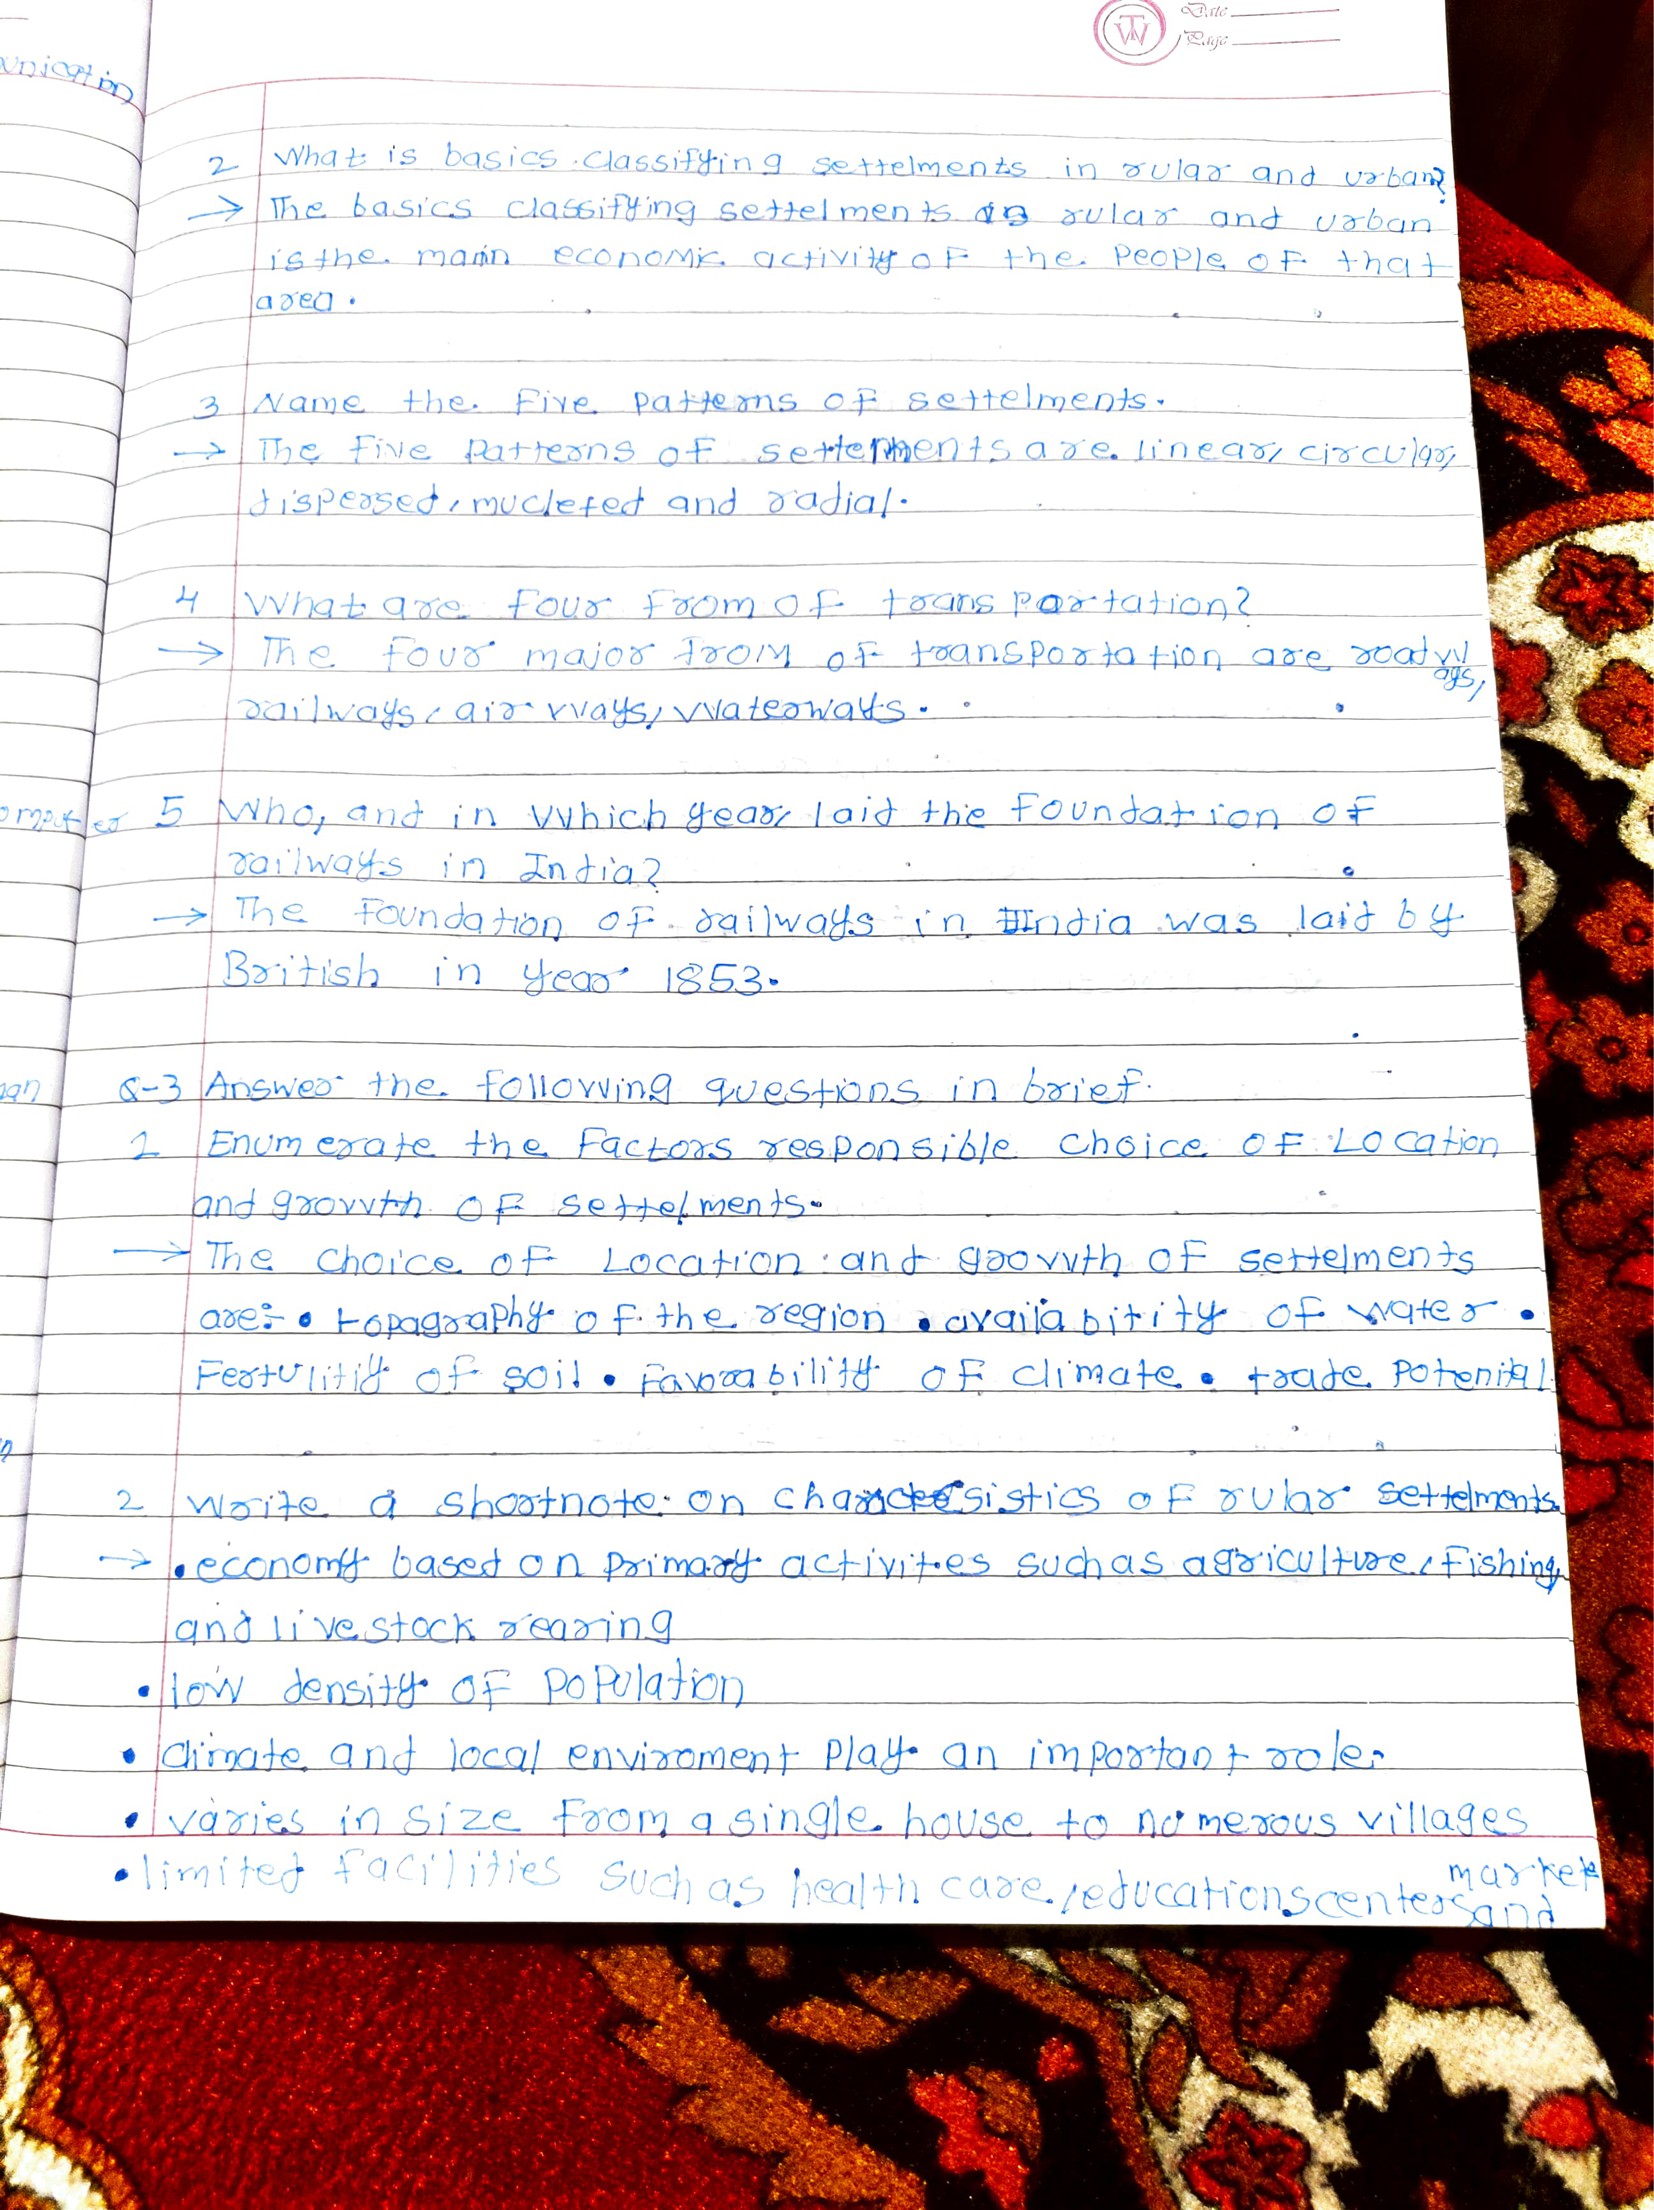 Date
Page
TW
unication
2 What is basics classifying settelments in rular and urban?
→ The basics classifying settelments in rular and urban
is the main economic activity of the people of that
area.
3 Name the five patterns of settelments.
→ The five patterns of settelments are linear, circular,
dispersed, mucleted and radial.
4 What are four from of transportation?
→ The four major from of transportation are roadways,
railways, airways, waterways.
omputer
5 Who, and in which year, laid the foundation of
railways in India?
→ The foundation of railways in India was laid by
British in year 1853.
Q-3 Answer the following questions in brief.
1 Enumerate the factors responsible choice of Location
and growth of settelments.
→ The choice of Location and growth of settelments
are:- • topagraphy of the region • availabitity of water •
Fertulitiy of soil • Favorability of climate • trade potenital
2 Write a shortnote on charactersistics of rular settelments
→ • economy based on primary activities such as agriculture, fishing,
and livestock rearing
• low density of population
• climate and local enviroment play an important role.
• varies in size from a single house to numerous villages
• limited facilities such as health care, educationscenters and market